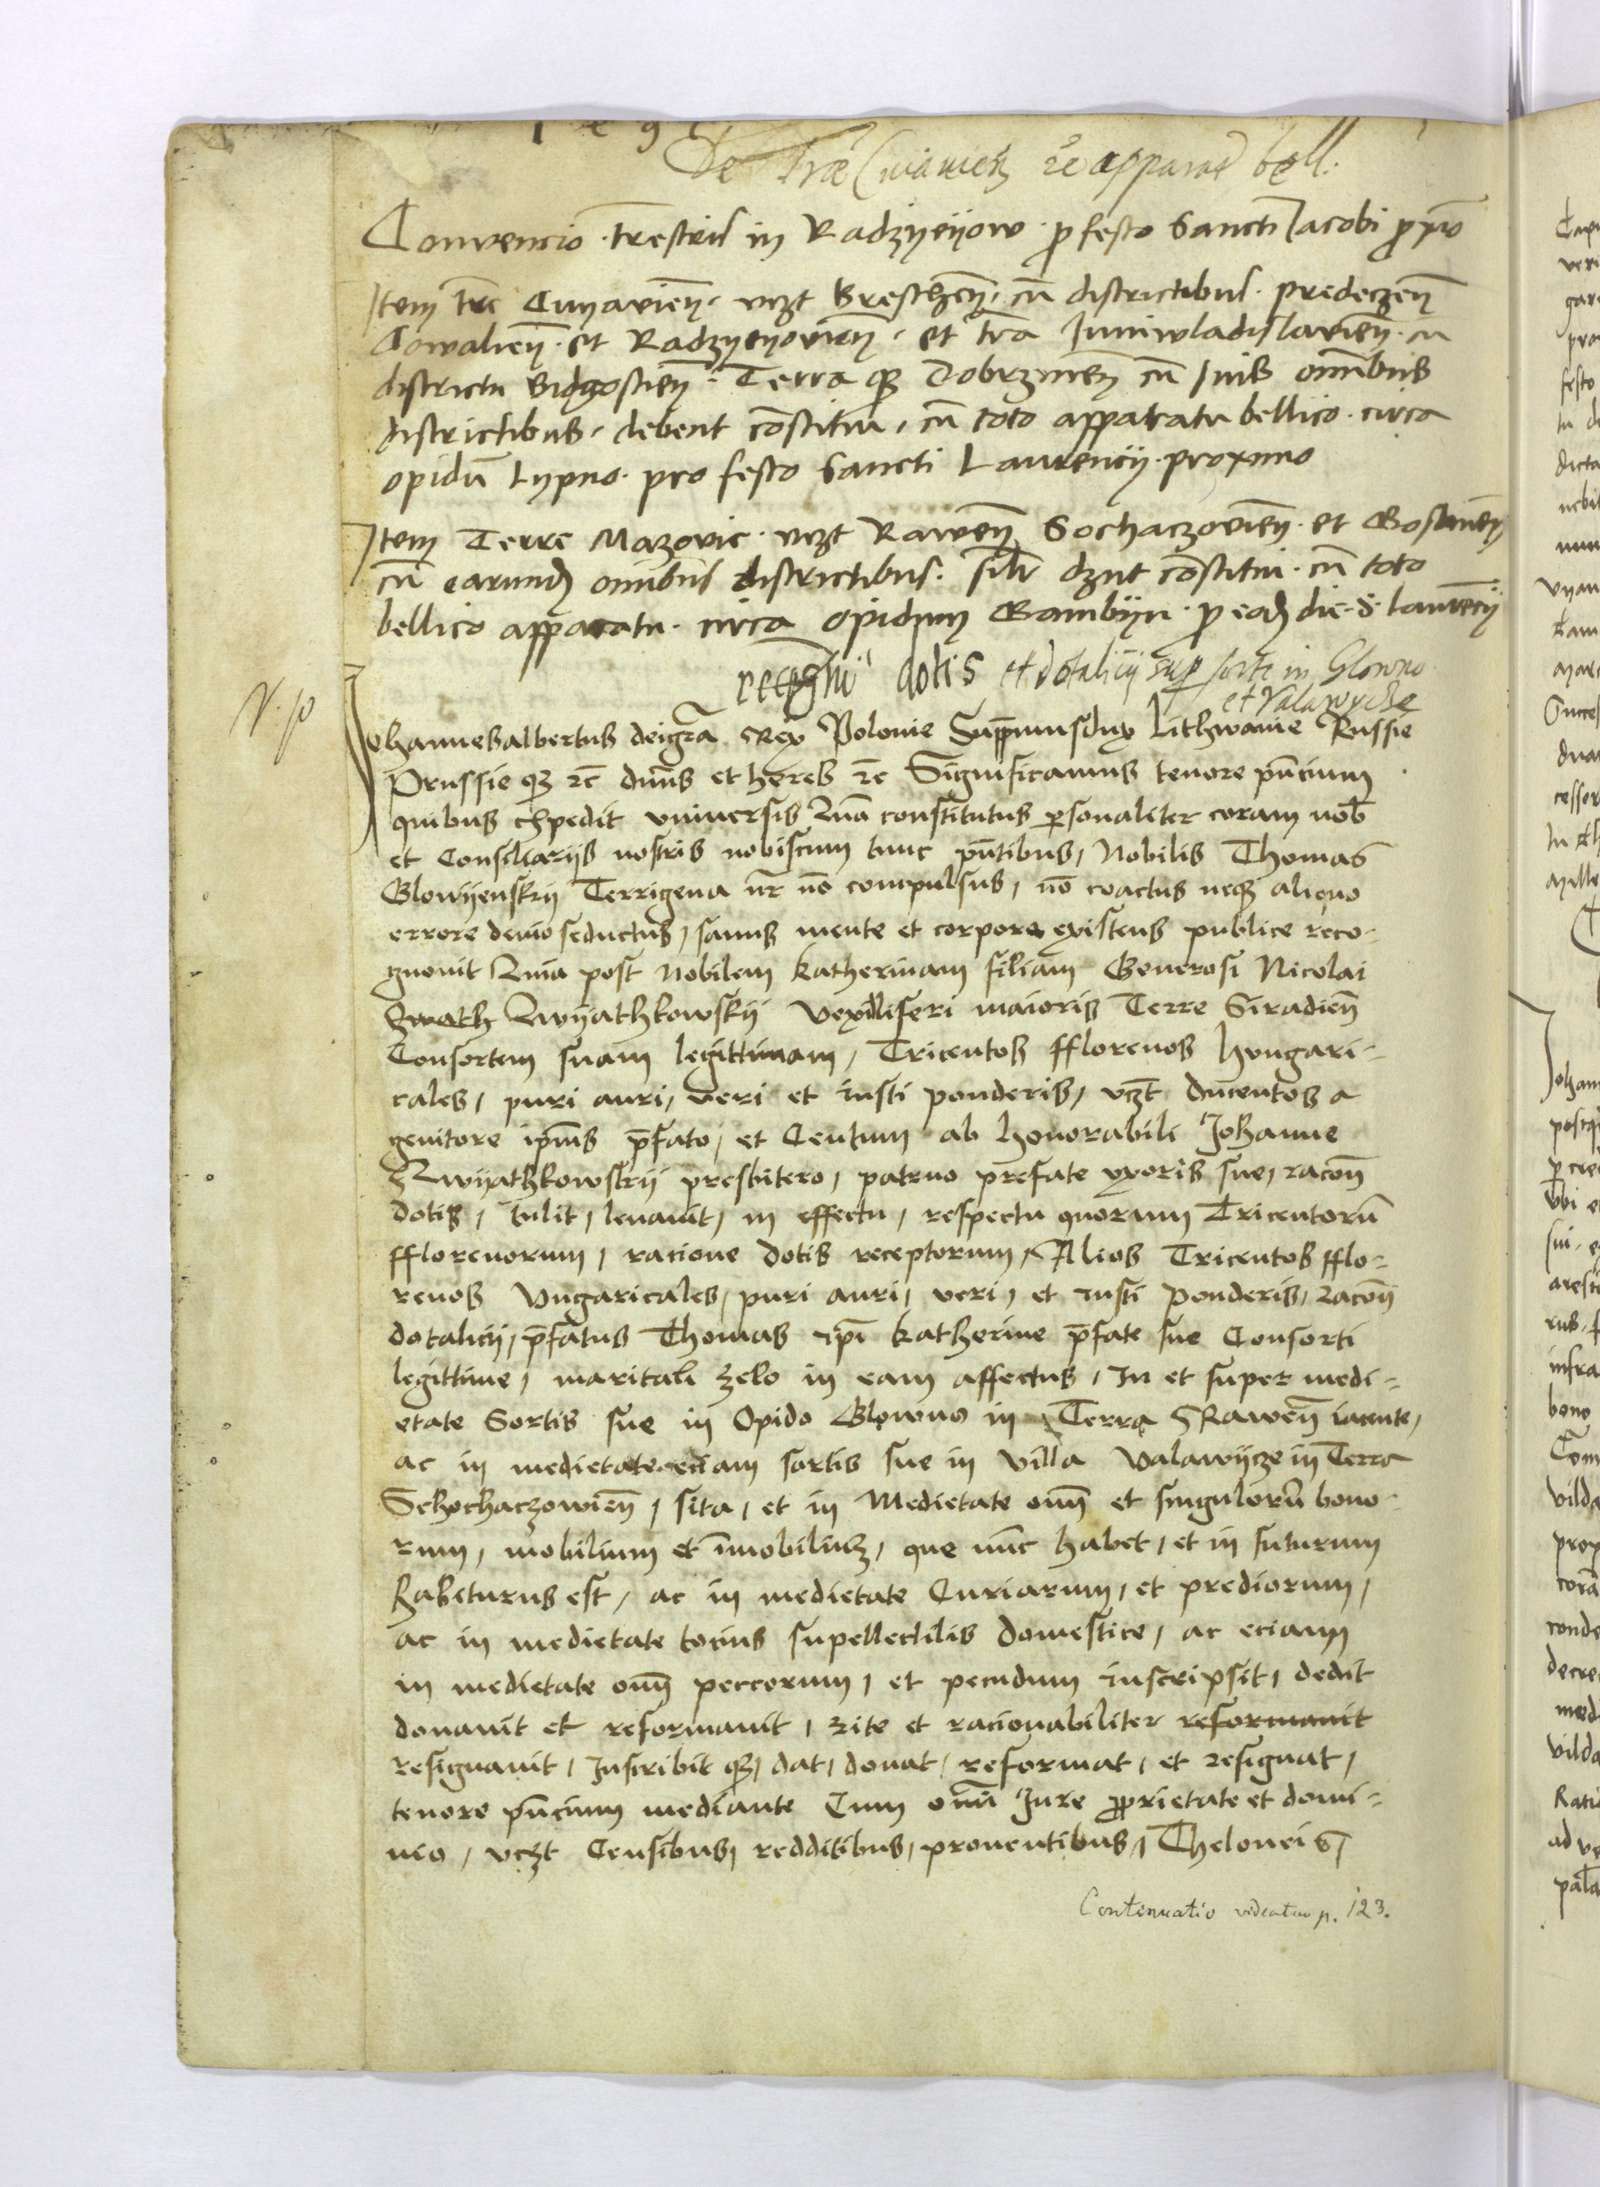 De Trae Cuiavien̄ et apparat bell:
Convencio trestris in Radzyeyow p festo Sancti Jacobi proxīo
Item tr̄e Cuyavien̄. vczt Bresthen̄. cū districtibus. predeczen̄
Cowalien̄. et Radzyeyovien̄. et tr̄a Juniwladislavien̄. cū
districtu Bidgostien̄. Terra qz Dobrzinen̄ cū suis om̄ibus
districtibus. debent cōstitui. cū toto apparatu bellico. circa
opidū Lypno. pro festo Sancti Laurencij. proximo
Item Terre Mazovie. vczt Rawen̄ Sochaczovien̄. et Gostinen̄
cū earund̄ om̄ibus districtibus. sil̄r dzut cōstitui. cū toto
bellico apparatu. circa opidum Gambyn. p ead̄ die. S. Laurēcij
dotis et dotalicij sup sorte in Glowno
et Valawycze
Johannesalbertus deigr̄a Rex Polonie Supp̄musdux Lithwanie Russie
Prussie qz zc dn̄us et heres zc Significamus tenore pn̄cium
quibus expedit vniversis Quia constitutus psonaliter coram nob̄
et Consiliarijs nostris nobiscum tunc pn̄tibus, Nobilis Thomas
Glowyenskij Terrigena nr̄ nō compulsus, nō coactus neqz aliquo
errore devio seductus, sanus mente et corpore existens publice reco-
gnouit Quia post Nobilem Katherinam filiam Generosi Nicolai
Zwyathkowskij Vexilliferi maioris Terre Siradien̄
Consortem suam legittimam, Tricentos fflorenos hungari-
cales, puri auri, veri et iusti ponderis, vczt ducentos a
genitore ip̄ius p̄fato, et Centum ab honorabili Johanne
Zwyathkowskij presbitero, patruo prefate vxoris sue, racon̄
dotis, tulit, leuauit, in effectu, respectu quorum Tricentorū
fflorenorum, racione dotis receptorum, Alios Tricentos fflo-
renos Vngaricales, puri auri, veri, et iusti Ponderis, racon̄
dotalicij, p̄fatus Thomas ip̄i Katherine p̄fate sue Consorti
legittime, maritali zelo in eam affectus, In et super medi-
etate Sortis sue in Opido Glowno in Terra Rawen̄ iacente,
ac in medietate eciam sortis sue in villa Valawijcze in Terra
Schochaczowien̄, sita, et in Medietate om̄ et singulorū bono-
rum, mobilium et īmobilium, que nūc habet, et in futurum
habiturus est, ac in medietate Curiarum, et prediorum,
ac in medietate tocius supellectilis domestice, ac eciam
in medietate om̄ peccorum, et pecudum inscripsit, dedit
donauit et reformauit, rite et racionabiliter reformauit
resignauit, Inscribit qz, dat, donat, reformat, et resignat,
tenore pn̄cium mediante Cum om̄i Jure pprietate et domi-
nio, vczt Censibus, redditibus, prouentibus, Theloneis,
Contenuatio videatur p. 123.